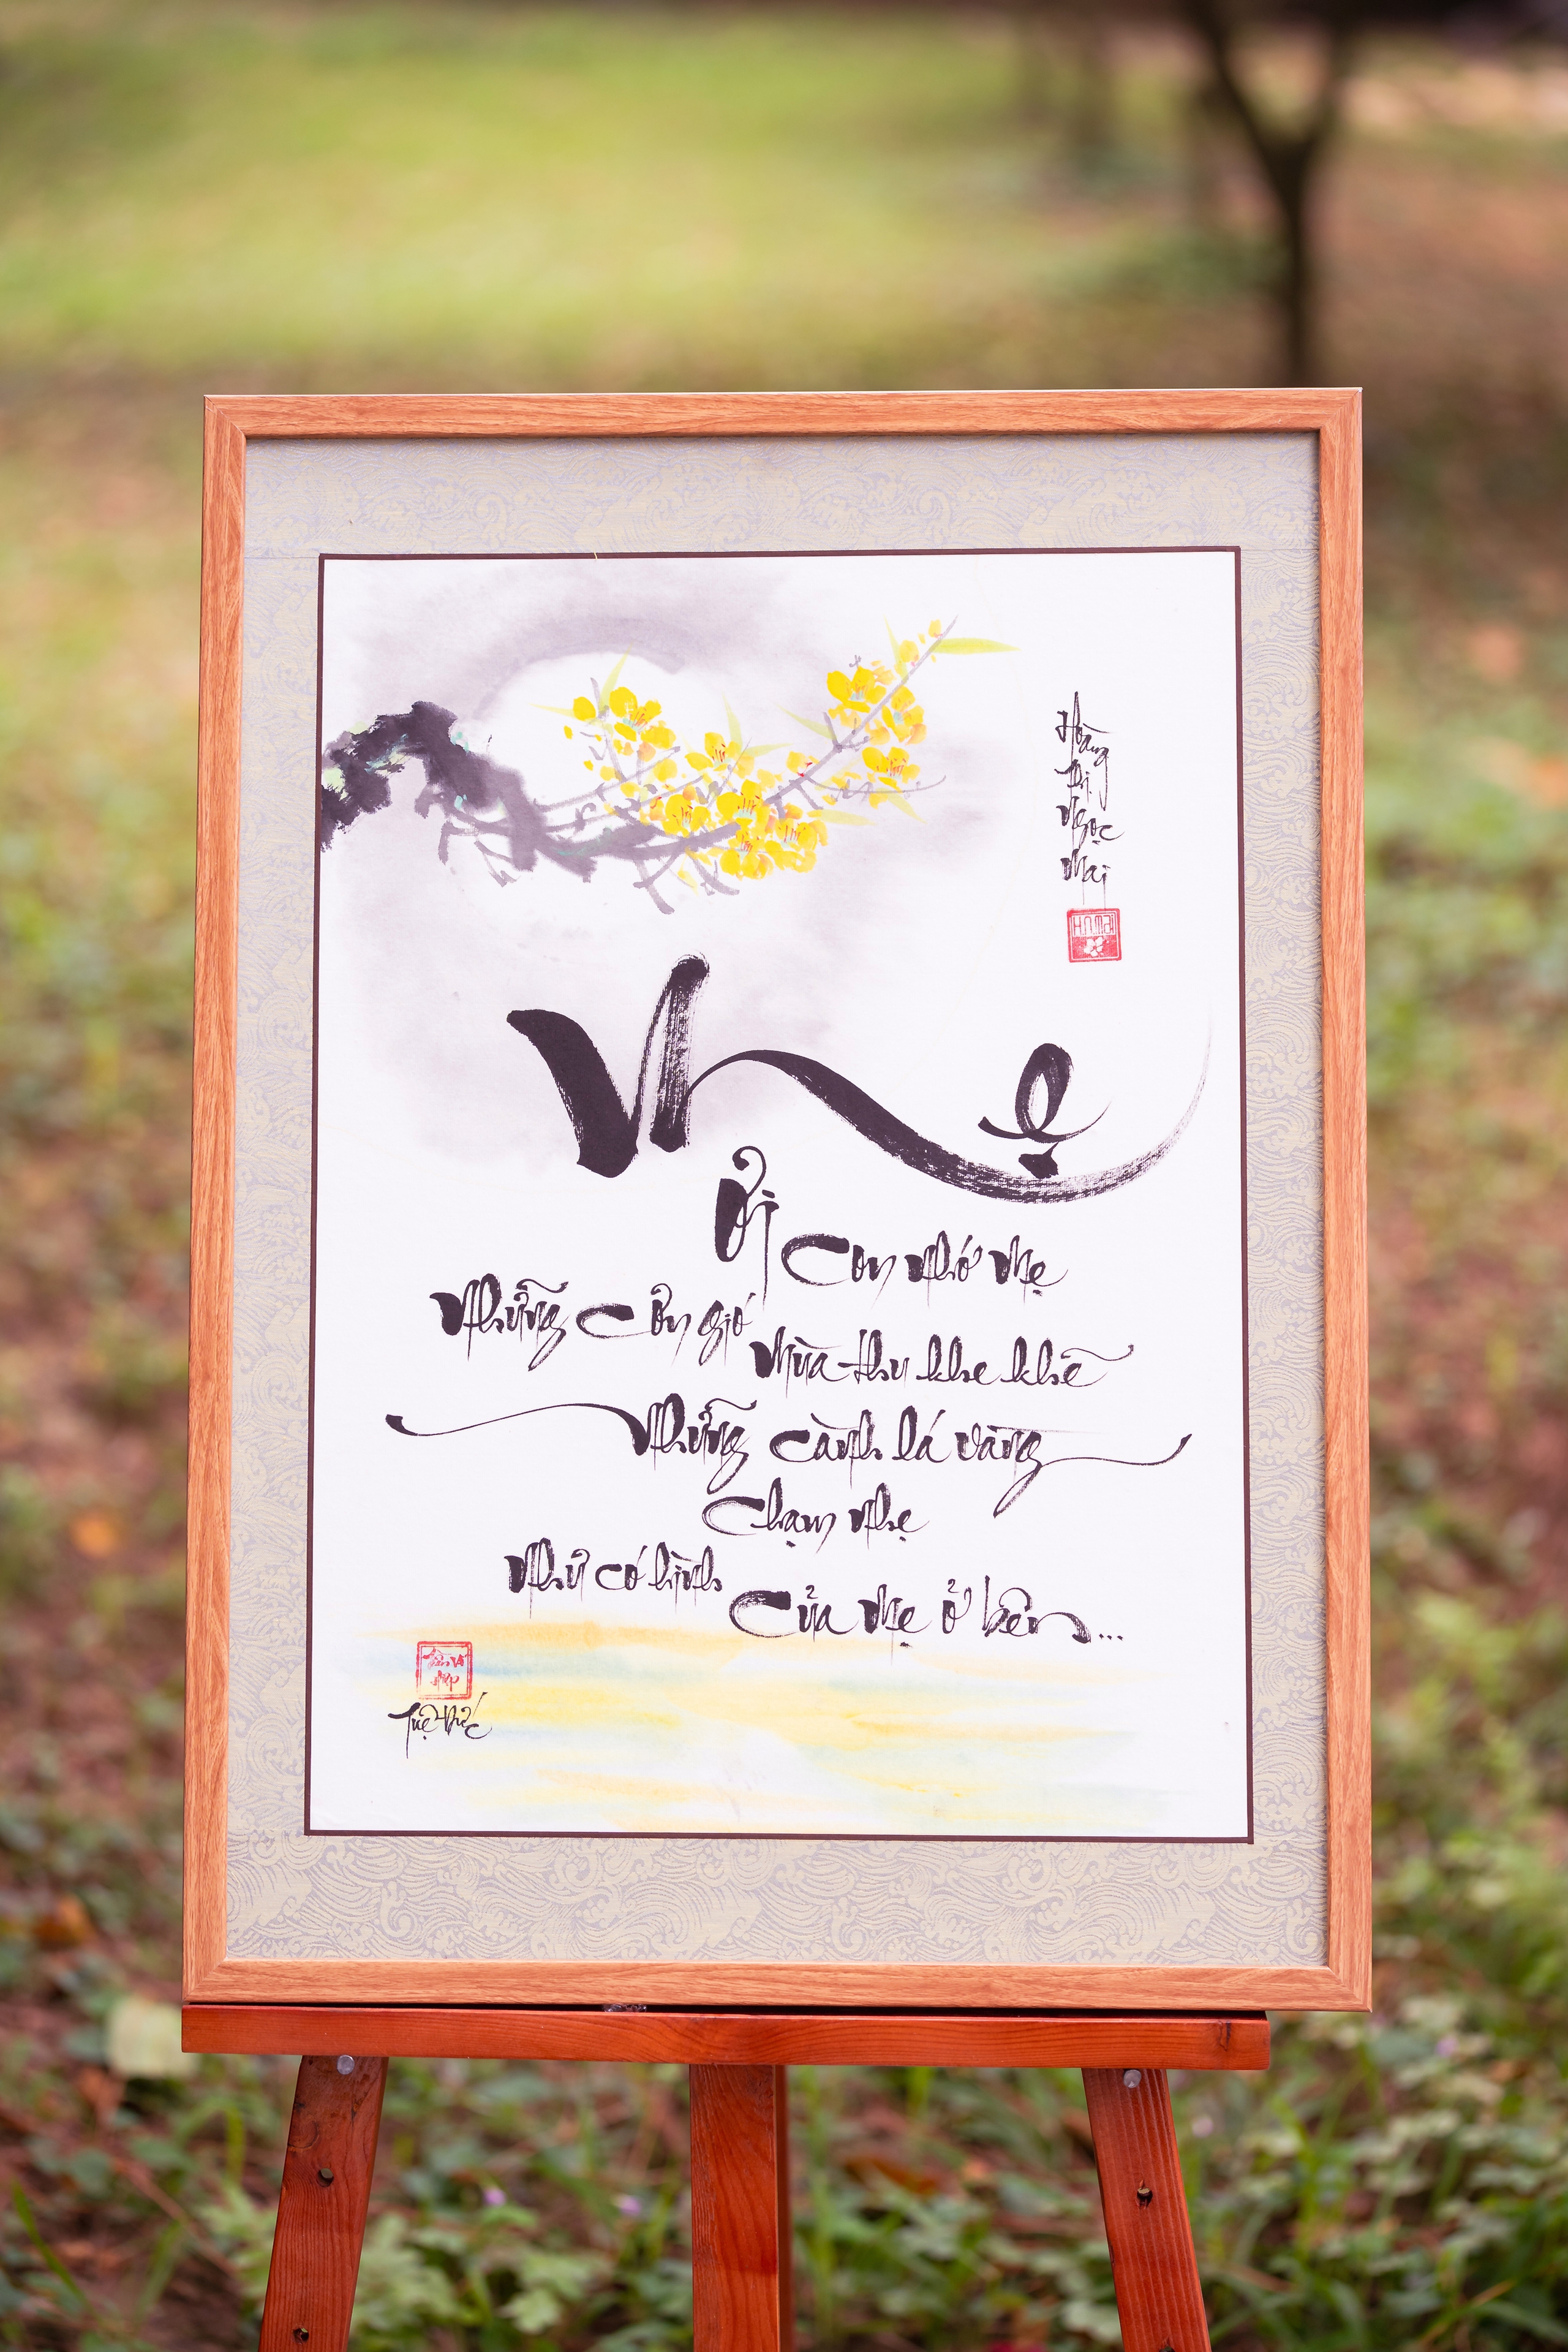 Hoàng
Thị
Ngọc
Mai
H.N.MAI
Mẹ
Ơi
Con nhớ Mẹ
Những cơn gió
Mùa thu khe khẽ
Những cành lá vàng
Chạm nhẹ
Như có hình
Của Mẹ ở bên...
Tuệ Đức